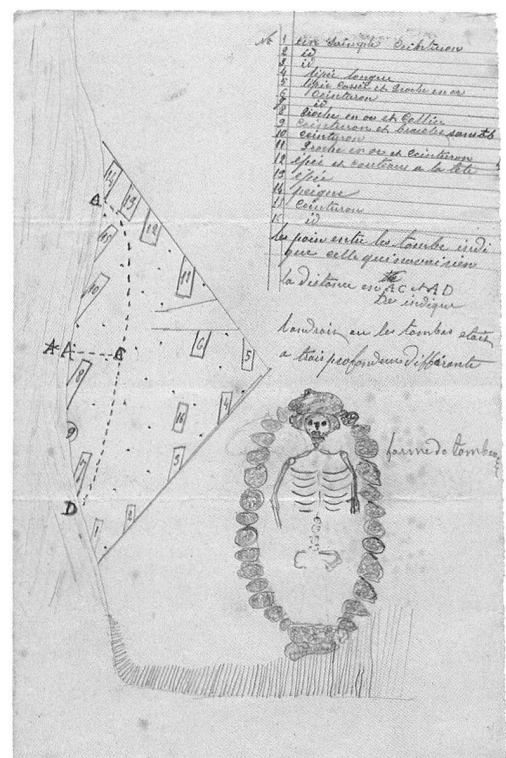 No 1 une simple Ceinturon
2 id
3 id
4 Epée longue
5 Epée cassée et Broche en or
6 Ceinturon
7 id
8 Broche en or et Collier
9 Ceinturon et broche
10 ceinturon
11 Broche en or et ceinturon
12 épée et couteau a la tête
13 épée
14 peigne
15 Ceinturon
id
les poin entre les tombe indi
que celle qui navai rien
la distance en AC et AD
De indique
landroi ou les tombes etait
a trois profondeur différente
forme de tombeau
14
13
12
11
10
6
5
A
C
8
4
9
7
3
D
1
2